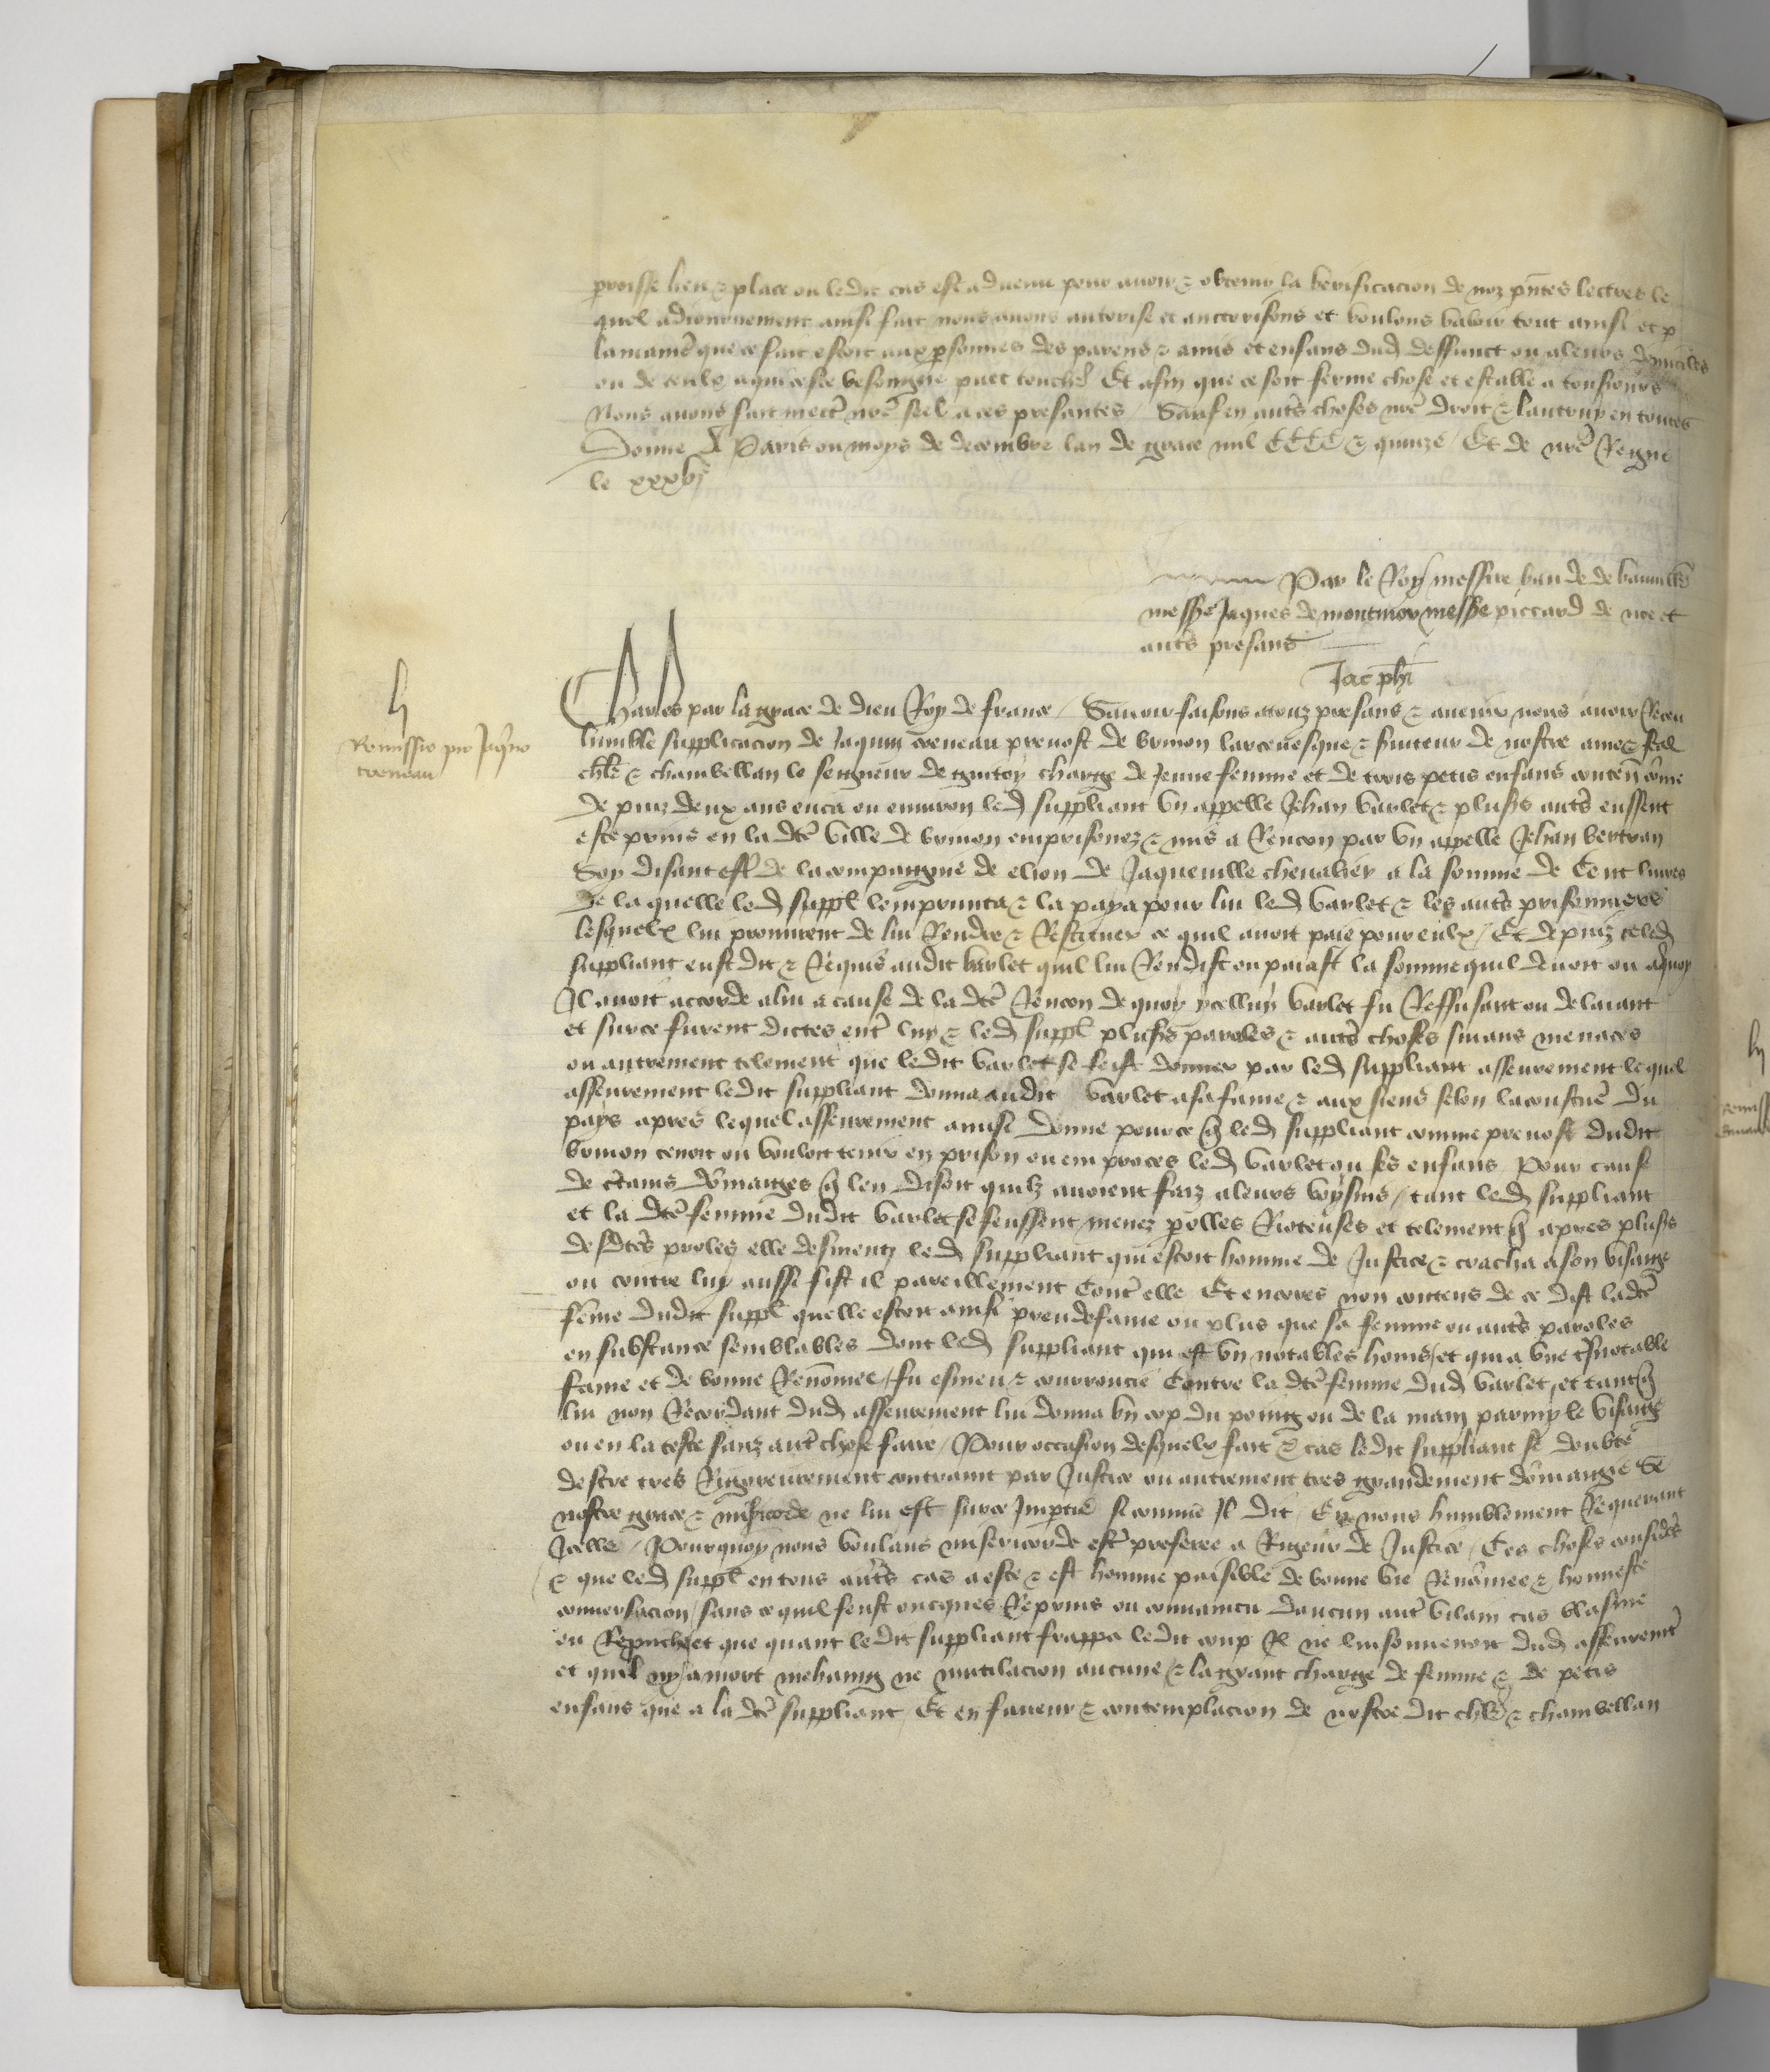 proisse lieu & place ou ledit cas est aduenu pour auoir & obtenir la verificacion de noz pntes lectres le
quel adiournement ainsi fait nous auons autorise et auctorisons et voulons valoir tout ainsi et p
la maniē que se fait estoit aux psonnes des parens & amis et enfans dud deffunct ou a leurs domiciles
ou de ceulx a qui ceste besoingne puet toucher Et afin que ce soit ferme chose et estable a tousiours
Nous auons fait mectē nrē seel a ces presantes / Sauf en autēs choses nrē droit & lautruy en toutes
Donne A Paris ou moys de decembre lan de grace mil CCCC & quinze / Et de nrē Regne
le xxxvj
Par le Roy messire
messe Jaques de montmor messe piccard de
autēs presans
Jac phi
h
Remissio pro Jaqno
creneau
Charles par la grace de dieu Roy de france / Sauoir faisons a touz presans & auenir nous auoir Receu
lumble supplicacion de Jaquin creneau preuost de vrmon larceuesque & seruiteur de nostre ame & feal
chlr & chambellan le seigneur de guitry charge de Jeune femme et de trois petis enfans conten cōme
de puiz deux ans enca ou enuiron led suppliant vn appelle Jehan varlet & plusrs autēs eussent
este prins en la dtē ville de vrmon emprisonez & mis a Rencon par vn appelle Jehan bertran
Soy disant de la compaignie de elion de Jaqueuille cheualier a la somme de Cent liures
De la quelle led suppl lemprunta & la paya pour lui led varlet & les autēs prisonniers
lesquelx lui promirent de lui Rendre & Restituer ce quil auoit paie pour eulx / Et depuiz ce led
suppliant eust dit & Requis audit varlet quil lui Rendist ou paiast la somme quil deuoit ou a quoy
Il auoit accorde a lui a cause de la dtē Rencon de quoy ycellui varlet fu Reffusant ou delaiant
et sur ce furent dictes entē luy & led suppl plusrs paroles & autēs choses sinans menaces
ou autrement telement que ledit varlet se feist donner par led suppliant asseurement le quel
asseurement ledit suppliant donna audit varlet a sa fame & aux siens selon la coustūe du
pays apres lequel asseurement ainsi donne pour ce q led suppliant comme preuost dudit
vrmon tenoit ou vouloit tenir en prison ou em proces led varlet ou ses enfans Pour cause
de ctains dōmaiges q len disoit quilz auoient faiz a leurs voysins / tant led suppliant
et la dtē femme dudit varlet se feussent menez polles Rioteuses et telement q apres plusrs
desdtēs proles elle desmenty led suppliant qui estoit homme de Justice & cracha a son visaige
ou contre luy aussi fist il pareillement Contē elle Et encores non contens de ce dist ladtē
fēme dudit suppl quelle estoit ainsi preudefame ou plus que sa femme ou autēs paroles
en substance semblables dont led suppliant qui est vn notables homs / et qui a vne notable
fame et de bonne Renōmee / fu esmeu & courroucie Contre la dtē femme dud varlet / et tant q
lui non Recordant dud asseurement lui donna vn cop du poing ou de la main parmy le visaige
ou en la teste sanz autē chose faire / Pour occasion desquelx fait & cas ledit suppliant se doubte
destre tres Rigoreurement contraint par Justice ou autrement tres grandement dōmaige Se
nostre grace & mīsicorde ne lui est sur ce Imptie si comme Il dit / En nous humblement Requerant
Jcelle / Pourquoy nous voulans misericorde estē preferee a Rigeur de Justice / Ces choses considēs
& que led suppl en tous autēs cas a este & est homme paisible de bonne vie Renōmee & honneste
conuersacion / sans ce quil feust oncques Reprins ou conuaincu daucun autē vilain cas blasme
ou Reprouche et que quant ledit suppliant frappa ledit coup Il ne lui souuenoit dud asseuremt
et quil ny a mort mehaing ne mutilacion aucune / & la grant charge de femme & de petis
enfans que a la dtē suppliant / Et en faueur & contemplacion de nostre dit chlr & chambellan